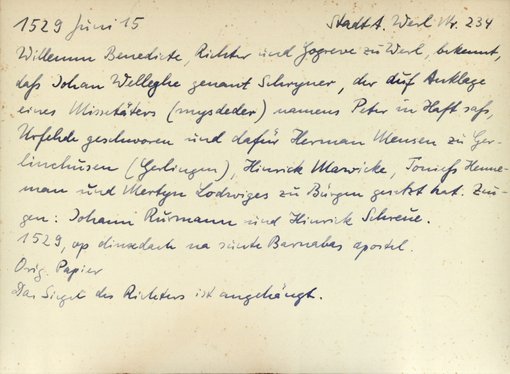 1529 Juni 15 StadtA. Werl Nr. 234
Willemm Benedicte, Richter und Gogreve zu Werl, bekennt,
daß Johan Welleghe genant Schryner, der auf Anklage
eines Missetäters (mysdeder) namens Peter in Haft saß,
Urfehde geschworen und dafür Herman Mensen zu Ger-
linchusen (Gerlingen), Hinrick Mawicke, Tonieß Henne-
man und Mertyn Lodwiges zu Bürgen gesetzt hat. Zeu-
gen: Johann Rurmann und Hinrick Schreue.
1529, op dinxdach na sünte Barnabas apostel.
Orig. Papier
Das Siegel des Richters ist angehängt.